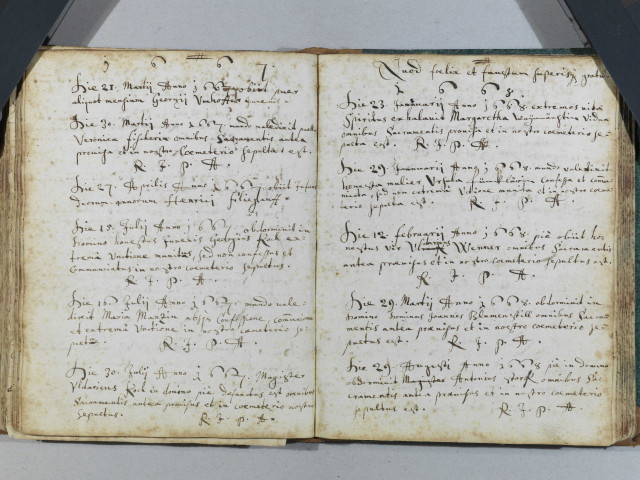 1 6 6 7.
Die 21. Martij Anno 1667 obijt puer
aliquot mensium Georgij
Die 30. Martij Anno 1667. mundo valedixit
Veronica Fischerin omnibus Sacramentis antea
provisa et in nostro Coemeterio sepulta est.
R. I. P. A.
Die 27. Aprilis Anno 1667 obijt
duorum annorum Henrici
Die 15. Julij Anno 1667. obdormivit in
Domino honestus Juvenis Georgius Rick ex-
tremâ Unctione munitus, sed non confessus et
Communicatus in nostro coemeterio sepultus.
R. I. P. A.
Die 16. Julij Anno 1667. mundo vale-
dixit Maria absq. Confessione, communione
et extremâ Unctione in nostro coemeterio se-
pulta. R. I. P. A.
Die 30. Julij Anno 1667. Magister
Udalricus Rick in domino pie defunctus est omnibus
Sacramentis antea provisus et in coemeterio nostro
sepultus. R. I. P. A.
Quod foelix et faustum superis
1 6 6 8.
Die 23. Januarij Anno 1668. extremos vitae
Spiritus exhalavit Margaretha Vidua
omnibus Sacramentis provisa et in nostro coemeterio se-
pulta est. R. I. P. A.
Die 29. Januarij Anno 1668. mundo valedixit
honesta mulier Ursula confessa et commu-
nicata sed non extremâ Vnctione munita et in nostro coeme-
terio sepulta est. R. I. P. A.
Die 12. februarij Anno 1668. piè obijt ho-
nestus vir Wenner omnibus Sacramentis
antea provisus et in nostro coemeterio sepultus est.
R. I. P. A.
Die 29. Martij Anno 1668. obdormivit in
Domino Dominus Joannes omnibus Sacra-
mentis antea provisus et in nostro coemeterio se-
pultus est. R. I. P. A.
Die 29. Augusti Anno 1668 piè in domino
obdormivit Magister Antonius Storf omnibus Sa-
cramentis antea provisus et in nostro coemeterio
sepultus est. R. I. P. A.